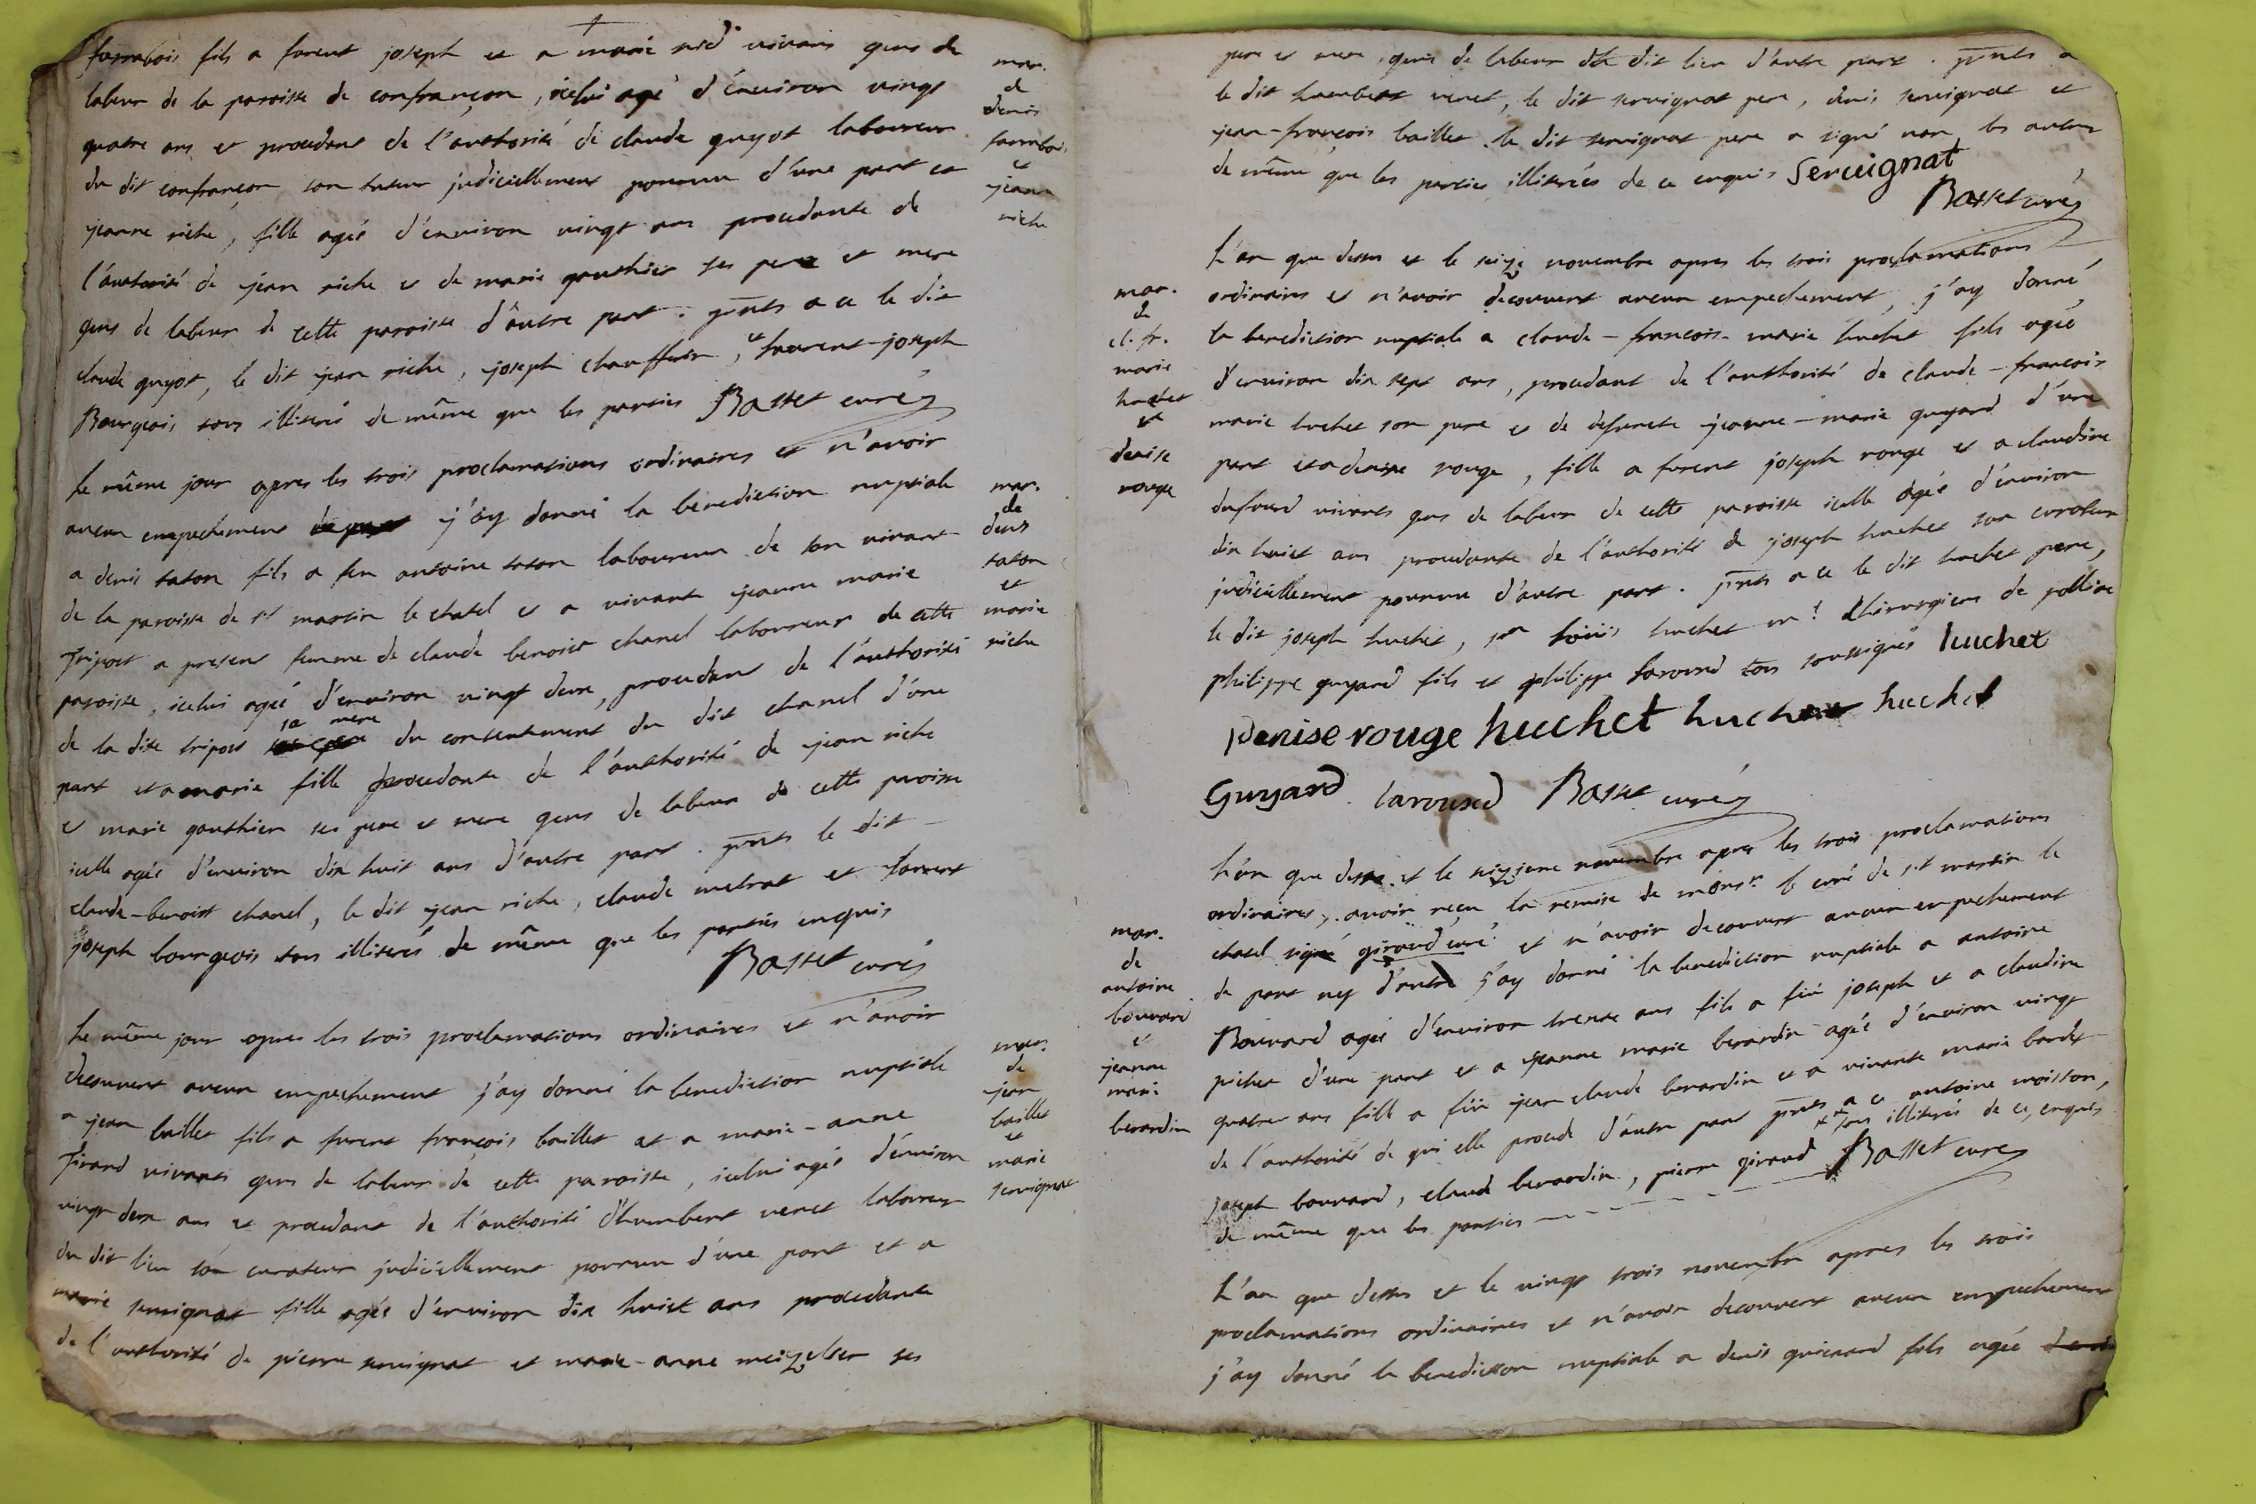 farrabois fils a furent joseph et a marie nid vivans gens de
labeur de la paroisse de confrançon, icelui agé d'énviron vingt
quatre ans et procedant de l'authorité de claude guyot laboureur
du dit confrançon son tuteur judiciellement pourvu d'une part et
jeanne riche, fille agée d'énviron vingt ans procedante de
l'authorité de jean riche et de marie gauthier ses pere et mere
gens de labeur de cette paroisse d'autre part. pnts a ce le dit
claude guyot, le dit jean riche, joseph chauffour, et laurent-joseph
Bourgeois tous illiterés de même que les parties Basset curé
mar.
de
denis
farrabois
et
jeanne
riche
Le même jour apres les trois proclamations ordinaires et n'avoir
aucun empechement j'ay donné la bénediction nuptiale
a denis taton fils a feu antoine taton laboureur de son vivant
de la paroisse de st martin le chatel et a vivante jeanne marie
Tripoz a present femme de claude benoist chanel laboureur de cette
paroisse, icelui agé d'énviron vingt deux, procedant de l'authorité
de la dite tripoz sa mere du consentement du dit chanel d'une
part et a marie fille procedante de l'authorité de jean riche
et marie gauthier ses pere et mere gens de labeur de cette proisse
icelle agée d'énviron dix huit ans d'autre part. pnts le dit
claude-benoist chanel, le dit jean riche, claude metrat et laurent
joseph bourgeois tous illiterés de même que les parties enquis
Basset curé
mar.
de
denis
taton
et
marie
riche
Le même jour apres les trois proclamations ordinaires et n'avoir
decouvert aucun empechement j'ay donné la benediction nuptiale
a jean baillet fils a furent françois baillet et a marie-anne
Tirand vivants gens de labeur de cette paroisse, icelui agé d'énviron
vingt deux ans et procedant de l'authorité d'humbert venet laboureur
du dit lieu son curateur judiciellement pourvu d'une part et a
marie servignat fille agée d'environ dix huict ans procedante
de l'authorité de pierre servignat et marie-anne ses
mar.
de
jean
baillet
et
marie
servignat
pere et mere, gens de labeur du dit lieu d'autre part. pnts a
le dit humbert venet, le dit servignat pere, denis servignat et
jean-françois baillet. le dit servignat pere a signé non les autres
de même que les parties illiterées de ce enquis Servignat
Basset curé
mar.
de
cl. fr.
marie
huchet
et
denise
rouge
L'an que dessus et le seize novembre apres les trois proclamations
ordinaires et n'avoir decouvert aucun empechement, j'ay donné
la benediction nuptiale a claude-francois-marie huchet fils agée
d'environ dix sept ans, procedant de l'authorité de claude-francois
marie huchet son pere et de defuncte jeanne-marie guyard d'une
part et a denise rouge, fille a furent joseph rouge et a claudine
dufourd vivants gens de labeur de cette paroisse icelle agée d'énviron
dix huict ans procedante de l'authorité de joseph huchet son curateur
judiciellement pourvu d'autre part. pnts a ce le dit huchet pere,
le dit joseph huchet, sr loüis huchet mr chirurgien de polliac
philippe guyard fils et philippe laround tous soussignés huchet
Denise rouge huchet huchet huchet
Guyard. laround Basset curé
L'an que dessus et le seizieme novembre apres les trois proclamations
ordinaires, avoir reçu la remise de monsr le curé de st martin le
chatel signé giraud curé et n'avoir decouvert aucun empechement
de part ny d'autre j'ay donné la benediction nuptiale a antoine
Bouvard agé d'énviron trente ans fils a feü joseph et a claudine
pichet d'une part et a jeanne marie berardin agée d'énviron vingt
quatre ans fille a feü jean claude berardin et a vivante marie bardet
de l'authorité de qui elle procede d'autre part pnts a ce antoine moisson,
joseph bouvard, claude berardin, pierre giraud tous illiterés de ce, enquis
de même que les parties Basset curé
mar.
de
antoine
bouvard
et
jeanne
marie
berardin
L'an que dessus et le vingt trois novembre apres les trois
proclamations ordinaires et n'avoir decouvert aucun empechement
j'ay donné la benediction nuptiale a denis guicard fils agée